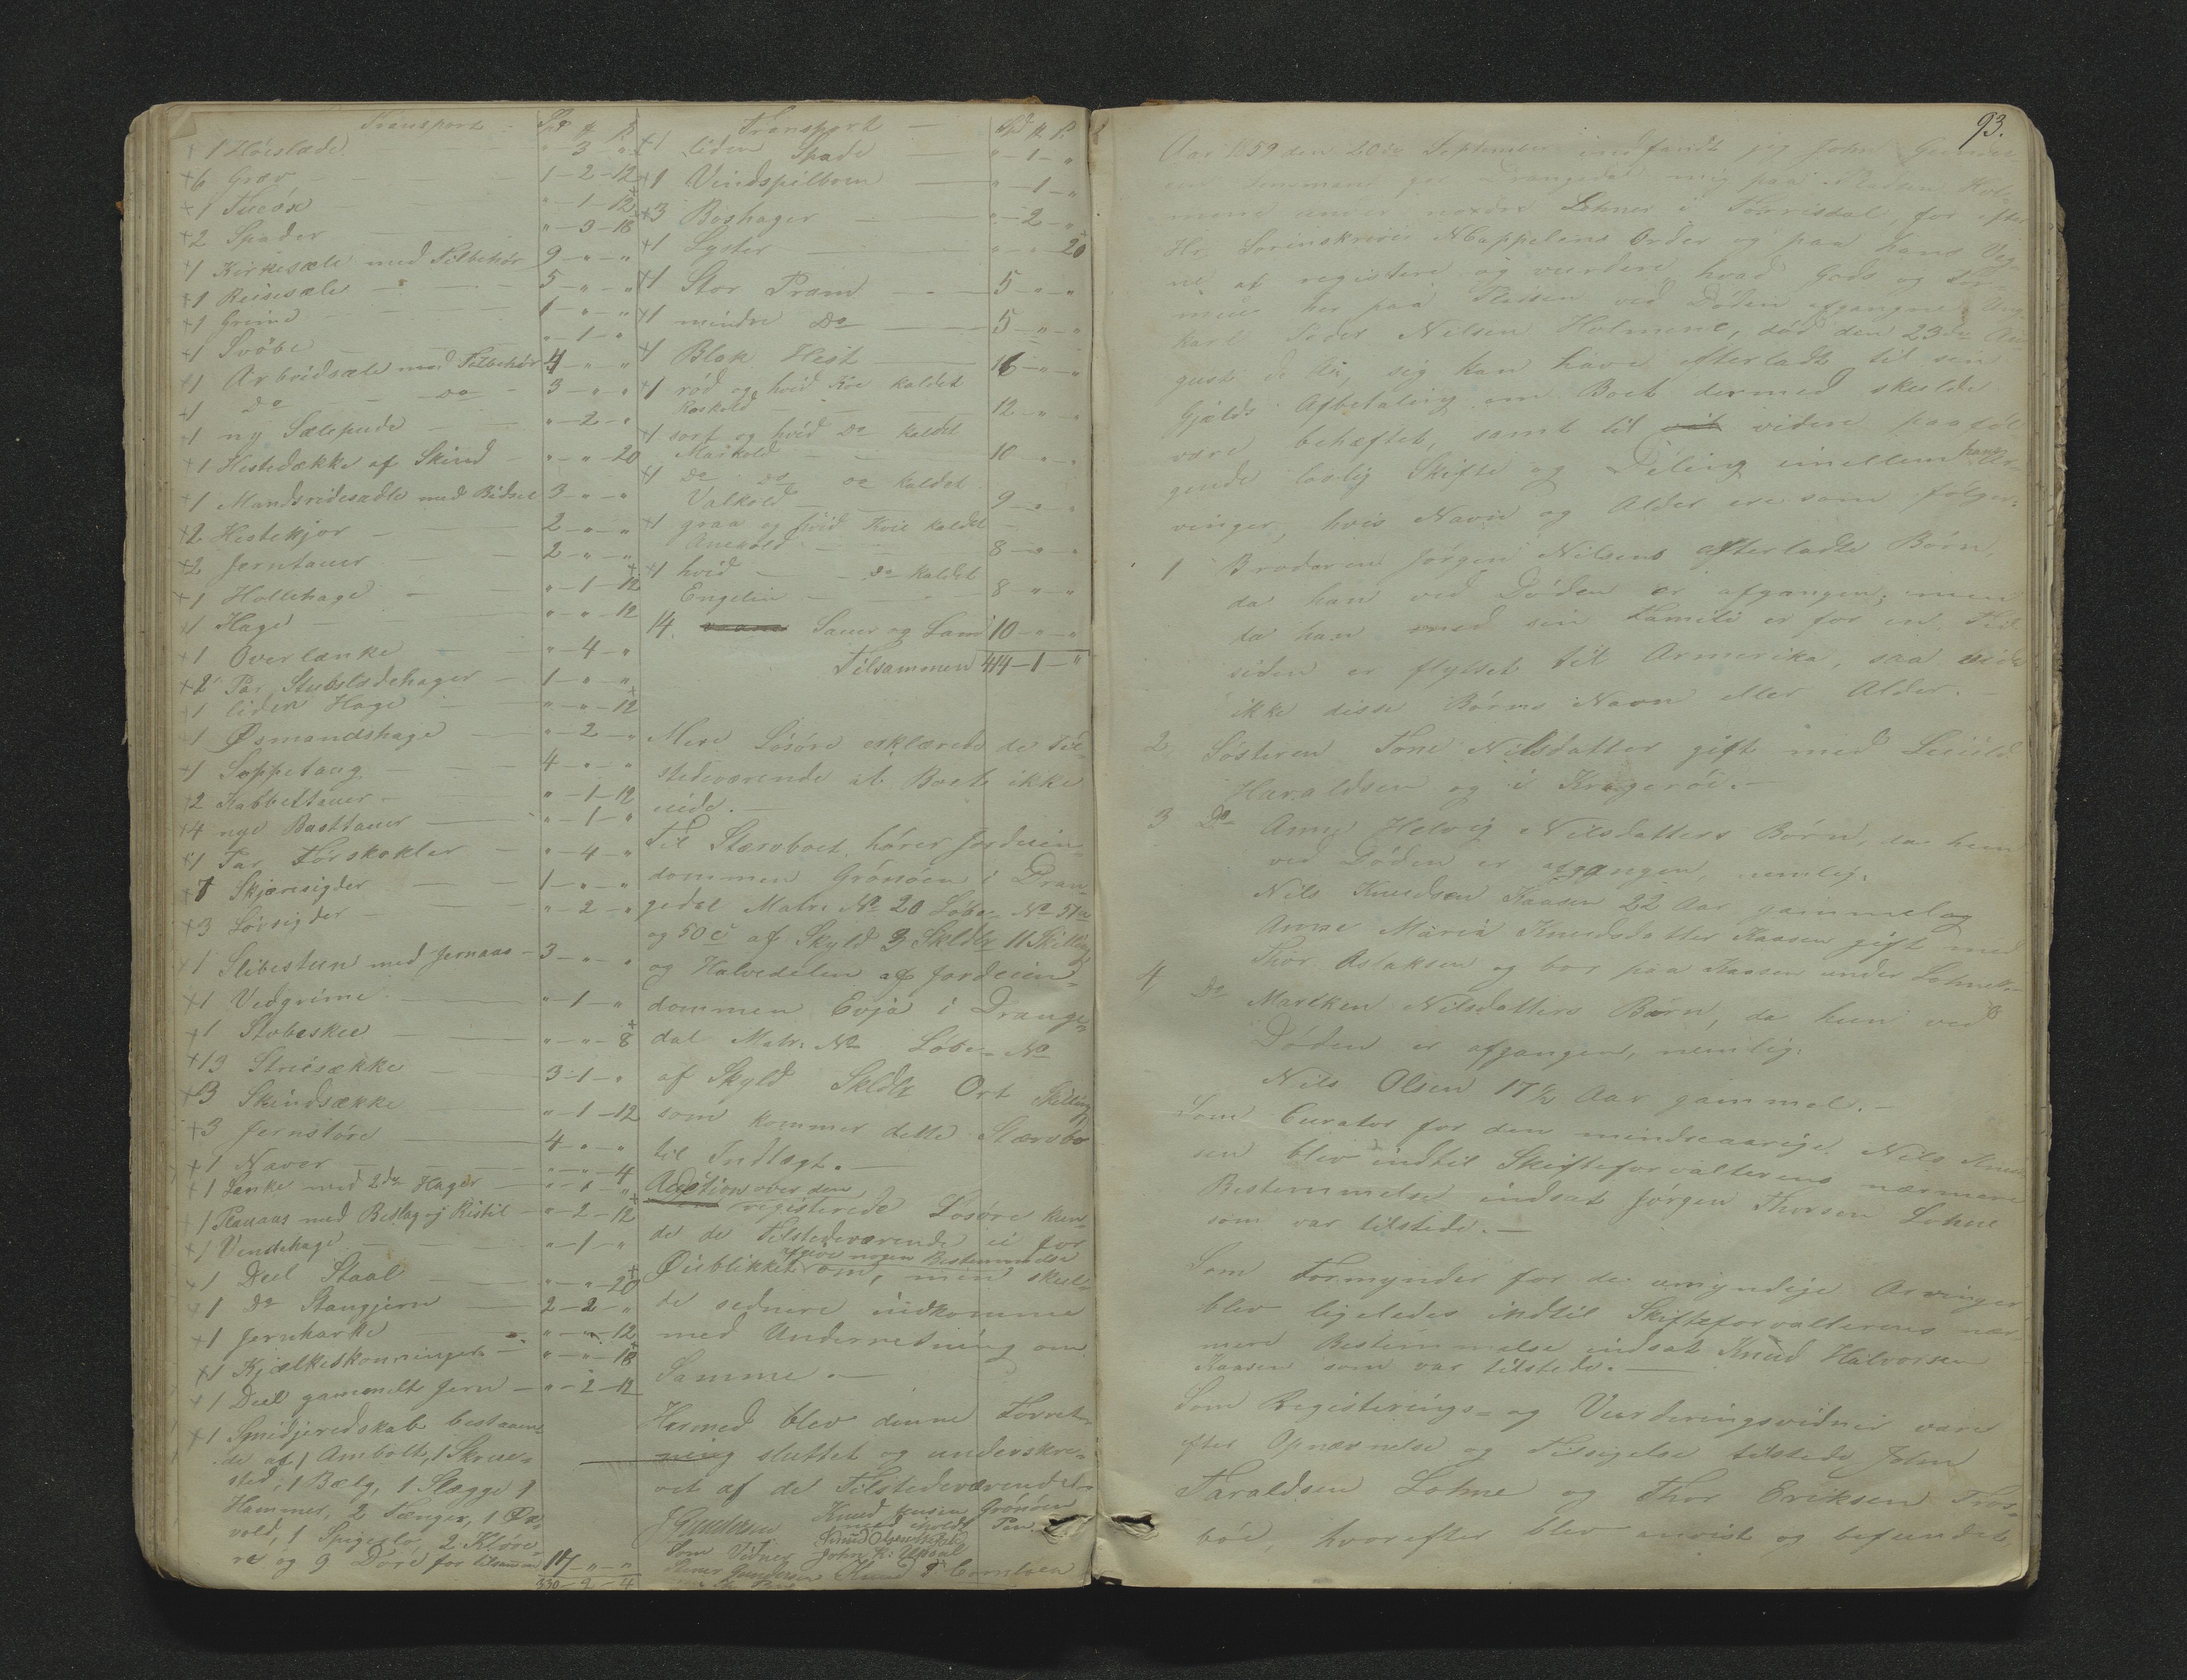 Transport
1 Høislæde " 3 "
6 Græv 1-2-12
1 "-1-12
2 Spader "-3-18
1 Kirkesæle med Tilbehør 9-"-"
1 Reisesæle 5-"-"
1 Grime 1-"-"
1 Svøbe "-1-"
1 Arbeidsæle med Tilbehør 4-"-"
1 do do 3-"-"
1 ny Sælepude "-2-"
1 Hestedække af Skind "-"-20
1 Mandsridesadle med Bidsel 3-"-"
2 Hestekjør 2-"-"
2 Jerntauer 2-"-"
1 Hollehage "-1-12
1 Hage "-"-12
1 Overlænke "-4-"
2 Par Stubslædehager 1-"-"
1 liden Hage "-"-12
1 Øsmandshage "-2-"
1 Søppetaug 4-"-"
2 Kabbettauer "-1-12
4 nye Basttauer "-1-"
1 Par Førskokler "-4-"
7 Skjæresigder 1-"-"
3 Løvsigder "-2-"
1 Slibesteen med Jernaas 3-"-"
1 Vedgrime "-1-"
1 Støbeskee "-"-8
13 Striesække 3-1-"
3 Skindsække "-1-12
3 Jernstøre 4-"-"
1 Naver "-"-4
1 Lænke med 2de Hager "-1-"
1 Plauaas med Beslag og Ristil "-2-12
1 Vendehage "-1-"
1 Deel Staal "-"-20
1 Do Stangjern 2-2-"
1 Jernharke "-"-12
1 Kjælkeskonninger "-"-18
1 Deel gammelt Jern "-2-12
1 Smidjeredskab bestaaen-
de af 1 Ambolt, 1 Skrue-
sted, 1 Bælg, 1 Slægge 1
Hammer, 2 Tænger, 1
1 Spigerlo, 2 Kløve
re og 9 Døre for tilsammen 17-"-"
330-2-4
Transport Spd
1 liden Spade "-1-"
1 Vindspilboen "-1-"
3 Boshager "-2-"
1 Lyster "-"-20
1 Stor Pram 5-"-"
1 mindre do 5-"-"
1 Blak Hest 16-"-"
1 rød og hvid Koe kaldet
Roskold 12-"-"
1 sort og hvid do kaldet
Maikold 10-"-"
1 do do do kaldet
Valkold 9-"-"
1 graa og hvid Kvie kaldet
8-"-"
1 hvid do kaldet
Engelin 8-"-"
14 Sauer og Lam 10-"-"
Tilsammen 414-1-"
Mere Løsøre erklærede de Til-
stedeværende at Boet ikke
eiede.
Til Stærvboet hører Jordeien-
dommen Grønøen i Dran-
gedal Matr. No 20 Løbe No 51a
og 50c af Skyld 3 Skldlr 11 Skilling
og Halvedelen af Jordeien-
dommen Evja i Drange-
dal Matr. No Løbe No
af Skyld Skldlr Ort Skilling
som kommer dette Stærvbo
til Indtægt.
Auction over den
registerede Løsøre kun-
de de Tilstedeværende ei for
afgive nogen Bestemmelse
Øieblikket om, men skul-
de sednere indkomme
med Underretning om
Samme.
Hermed blev denne Forret-
ning sluttet og underskre-
vet af de Tilstedeværende
JGundersen Knud Jensen Grønøen
med iholdt Pen
Som Vidner John K: Updal
Gundersen Knud
93.
Aar 1859 den 20de September indfandt jeg John Gunder
sen Lensmand for Drangedal mig paa Pladsen Hol-
mene under nordre Lohne i Tørrisdal, for efter
Hr. Sorenskriver NCappelens Order og paa hans Veg-
ne at registere og vurdere hvad Gods og For-
mue her paa Pladsen ved Døden afgangne Ung-
karl Peder Nilsen Holmene, død den 23de Au-
gust d. A., seg kan have efterladt til sin
Gjelds Afbetaling om Boet dermed skulde
være behæftet, samt til vidre paaføl
gende lovlig Skifte og Deling imellem hans Ar-
vinger, hvis Navn og Alder ere som følger:
1 Broderen Jørgen Nilsens efterladte Børn,
da han ved Døden er afgangen; men
da han med sin Familie er for en Tid
siden er flyttet til Armerika, saa vides
ikke disse Børns Navn eller Alder.
2, Søsteren Tone Nilsdatter gift med
Haraldsen og i Kragerøe.
3 Do Anne Helvig Nilsdatters Børn, da hun
ved Døden er afgangen, nemlig:
Nils Knudsen Kaasen 22 Aar gammel og
Anne Maria Knudsdatter Kaasen gift med
Thor Aslaksen og bor paa Kaasen under Lohne.
4 Do Marthen Nilsdatters Børn, da hun ved
Døden er afgangen, nemlig:
Nils Olsen 17½ Aar gammel.
Som Curator for den mindreaarige Nils Knud
sen blev indtil Skifteforvalterens nærmere
Bestemmelse indsat Jørgen Thorsen Lohne
som var tilstede.
Som Formynder for de umyndige Arvinger
blev ligeledes indtil Skifteforvalterens nær-
mere Bestemmelse indsat Knud Halvorsen
Kaasen som var tilstede.
Som Registerings- og Vurderingsvidner vare
efter Opnævnelse og Tilsigelse tilstede John
Taraldsen Lohne og Thor Eriksen Tros-
bøe, hvorefter blev anvist og befundet,